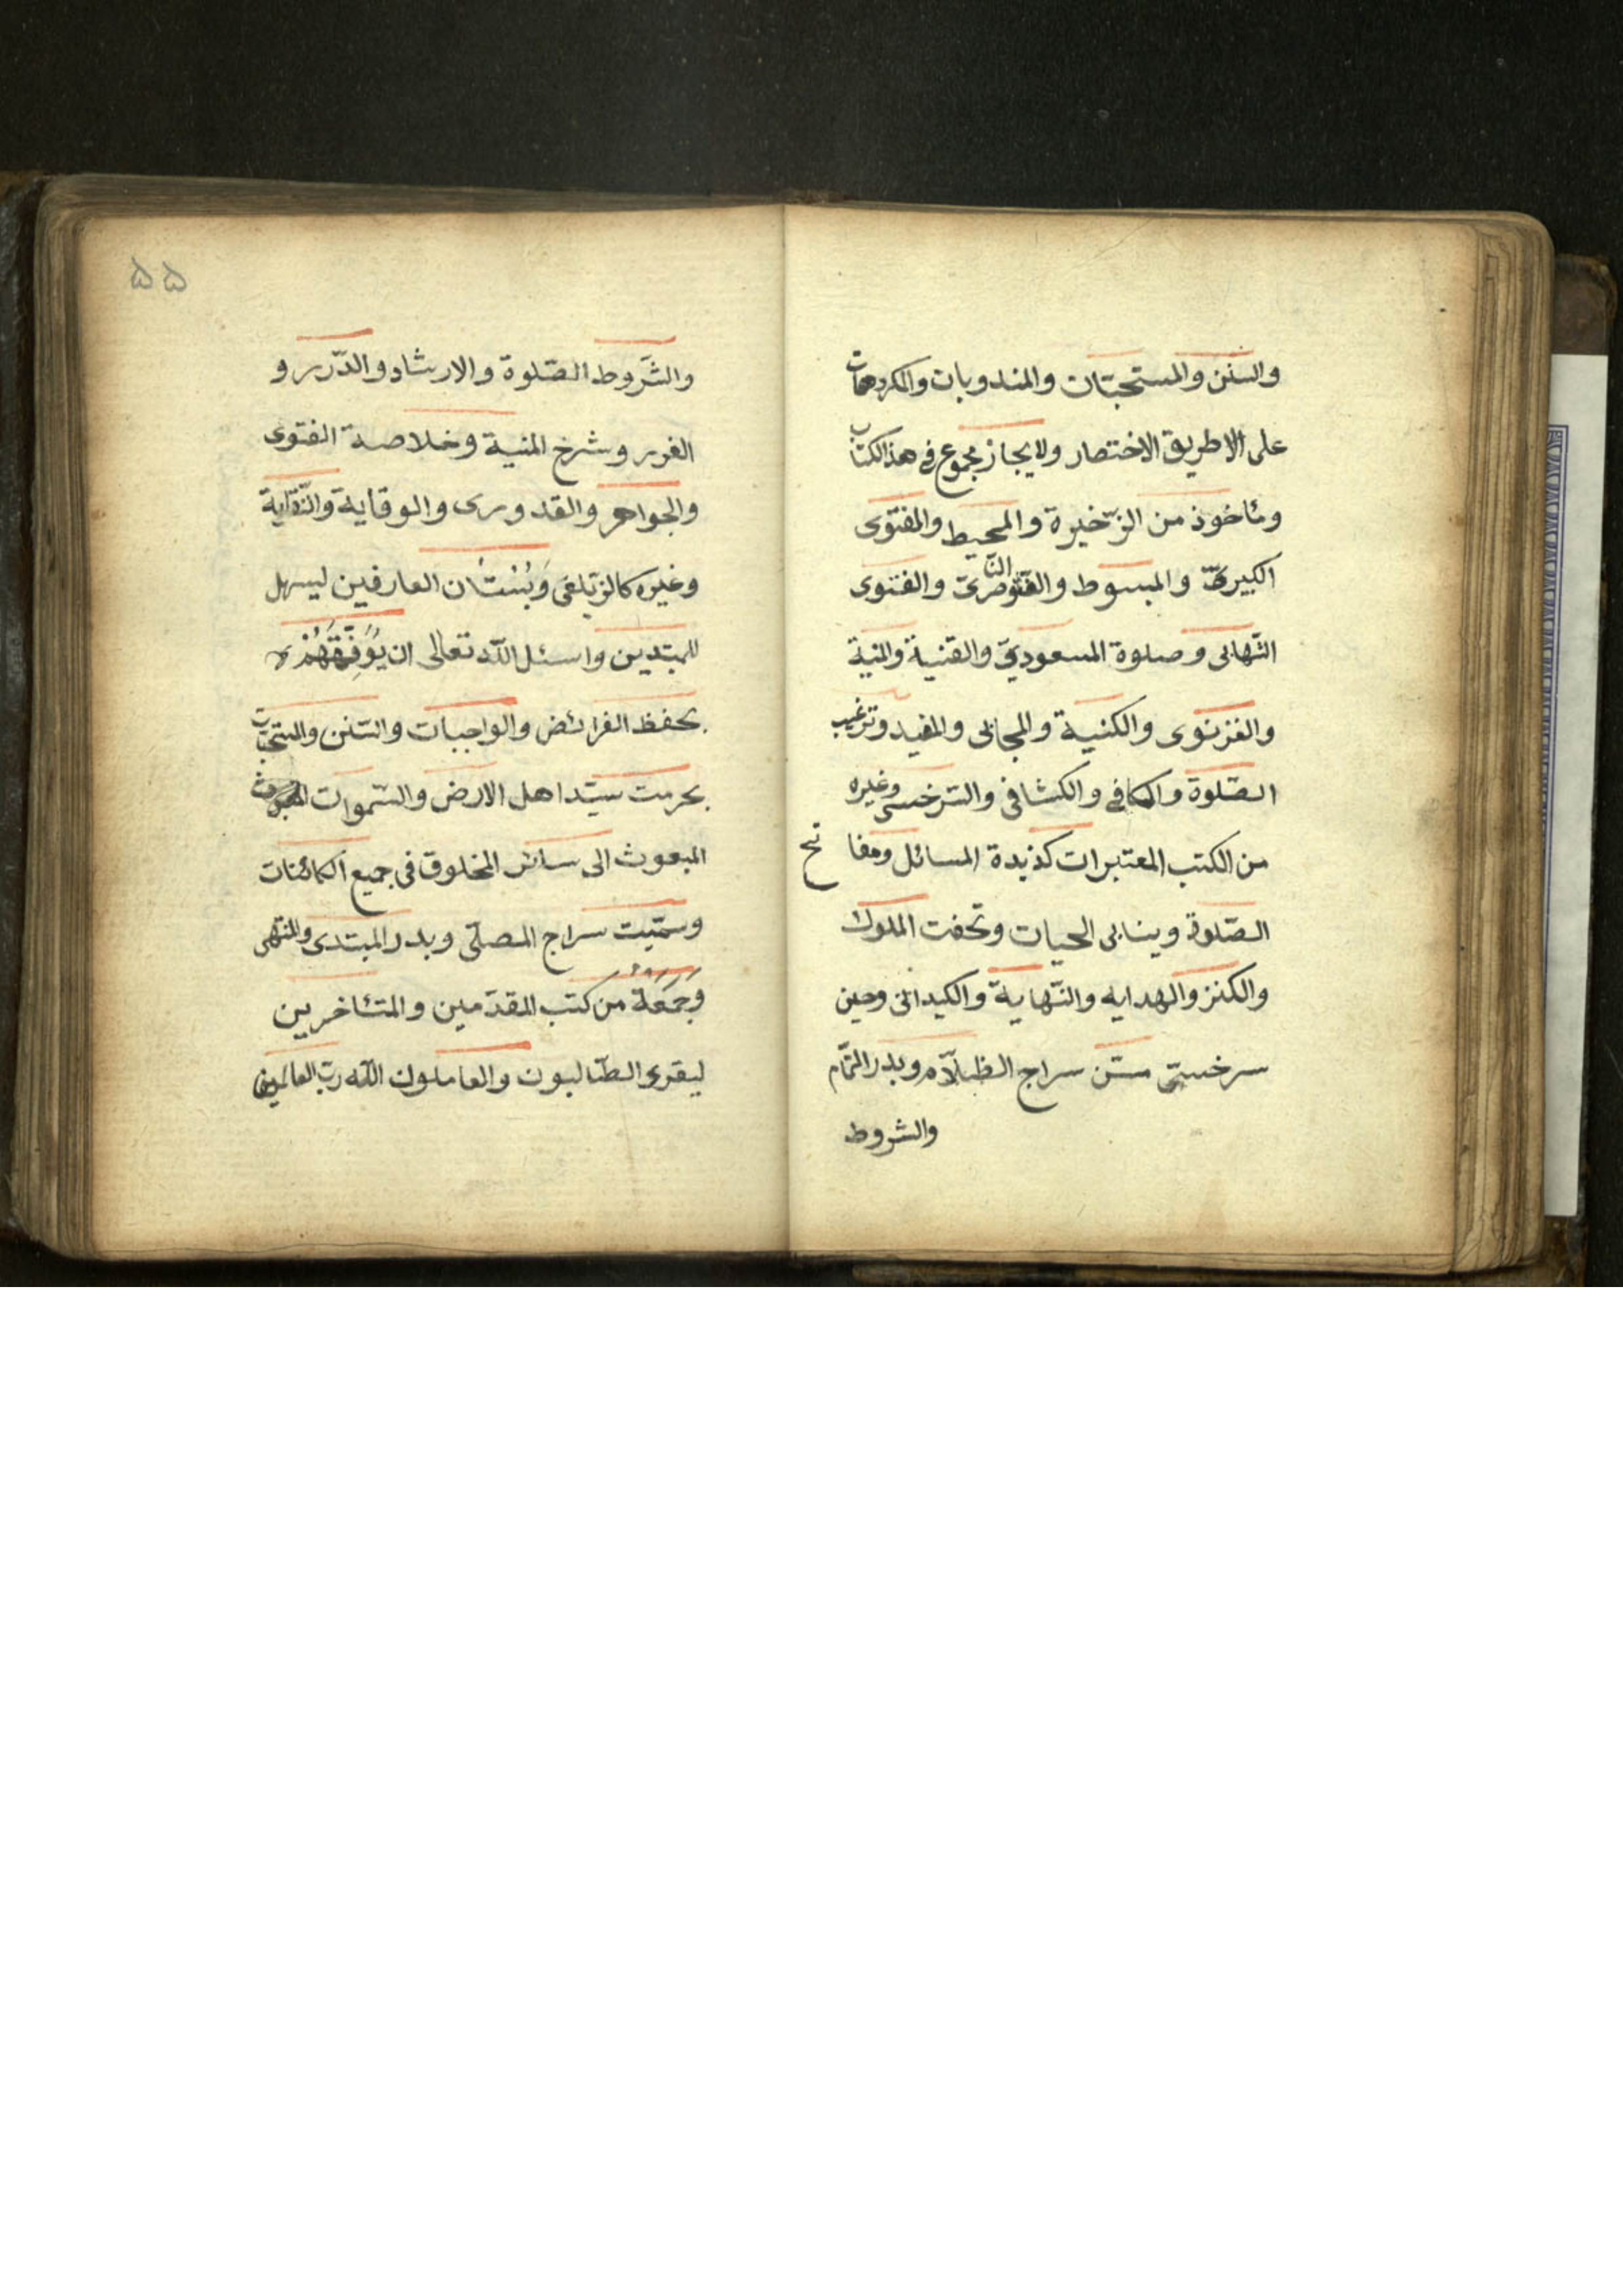 والسنن والمستحبّات والمندوبات والمكروهات
على الاطريق الاختصار ولا يجاز مجموع فى هذ الكتاب
ومٔاخوذ من الزّخيرة والمحيط والفتوى
الكبيرىّ والمبسوط والفتوى النّاصرىّ والفتوى
التّهابى وصلوة المسعودىّ والقنية والمنية
والغزنوى والكنية والمجابى والمفيد وترغيب
الصّلوة والكافى والكشافى والسّرخسى وغيره
من الكتب المعتبرات كذبدة المسائل ومفاتح
الصّلوة وينابى الحيات وتحفت الملوك
والكنز والهدايه والنّهاية والكيدانى وحين
سرخسىّ متن سراج الظّلام وبدر التّمام
والشروط
۵۵
والشّروط الصّلوة والارشاد والدّرر و
الغرر وشرح المنية وخلاصة الفتوى
والجواهر والقدورى والوقاية والنّقاية
وغيره كالزّيلعى وَبُسْتَان العارفين ليسهل
للمبتدين واسئل اللّه تعالى ان يُوَفِّقَهُمْ
بحفظ الفرائض والواجبات والسّنن والمستحبّات
بحرمت سيّد اهل الارض والسّموات
المبعوث الى سائر المخلوق فى جميع الكائنات
وسمّيت سراج المصلّى وبدر المبتدى والمنتهى
وَجَمَعَهُ من كتب المقدّمين والمتئاخرين
ليقرى الطّالبون والعاملون اللّه ربّ العالمين